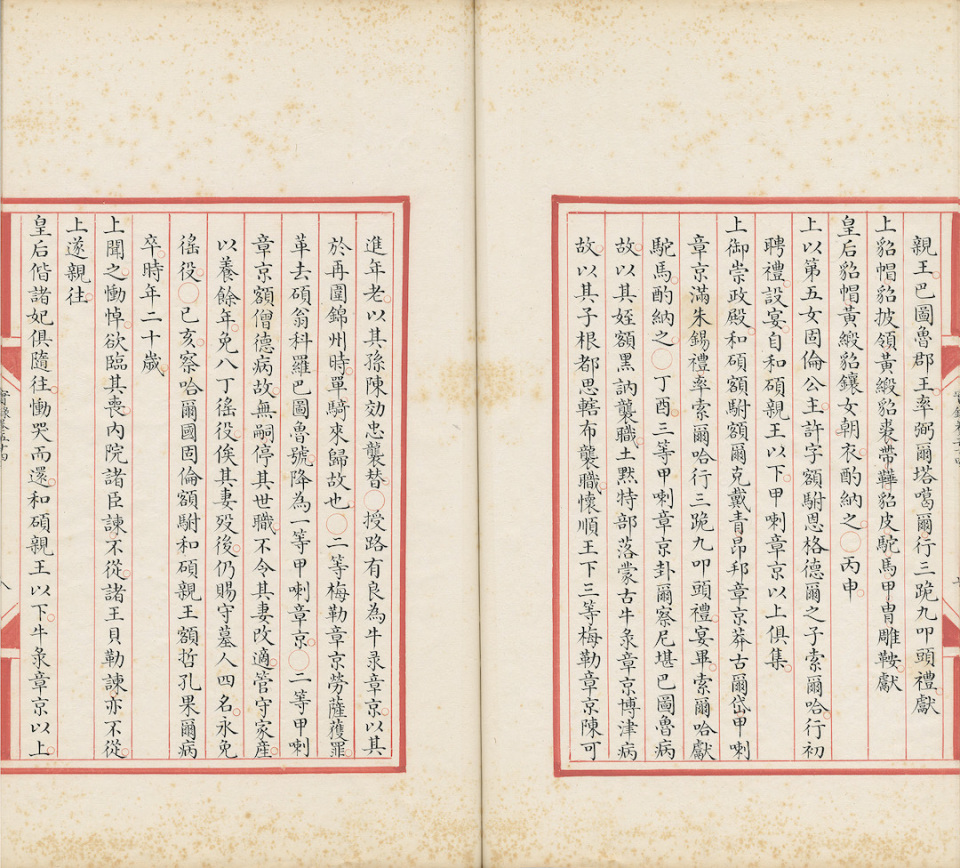 親王巴圖魯郡王率弼爾塔噶爾行三跪九叩頭禮獻
上貂帽貂披領黃緞貂裘帶韡貂皮駝馬甲冑雕鞍獻
皇后貂帽黃緞貂鑲女朝衣酌納之○丙申
上以第五女固倫公主許字額駙恩格德爾之子索爾哈行初
聘禮設宴自和碩親王以下甲喇章京以上俱集
上御崇政殿和碩額駙額爾克戴青昂邦章京莽古爾岱甲喇
章京滿朱錫禮率索爾哈行三跪九叩頭禮宴畢索爾哈獻
駝馬酌納之○丁酉三等甲喇章京卦爾察尼堪巴圖魯病
故以其姪額黑訥襲職土默特部落蒙古牛彔章京博津病
故以其子根都思轄布襲職懷順王下三等梅勒章京陳可
進年老以其孫陳効忠襲替○授路有良為牛录章京以其
於再圍錦州時單騎來歸故也○二等梅勒章京勞薩獲罪
革去碩翁科羅巴圖魯號降為一等甲喇章京○二等甲喇
章京額僧德病故無嗣停其世職不令其妻改適管守家產
以養餘年免八丁徭役俟其妻歿後仍賜守墓人四名永免
徭役○己亥察哈爾國固倫額駙和碩親王額哲孔果爾病
卒時年二十歲
上聞之慟悼欲臨其喪內院諸臣諫不從諸王貝勒諫亦不從
上遂親往
皇后偕諸妃俱隨往慟哭而還和碩親王以下牛彔章京以上
八